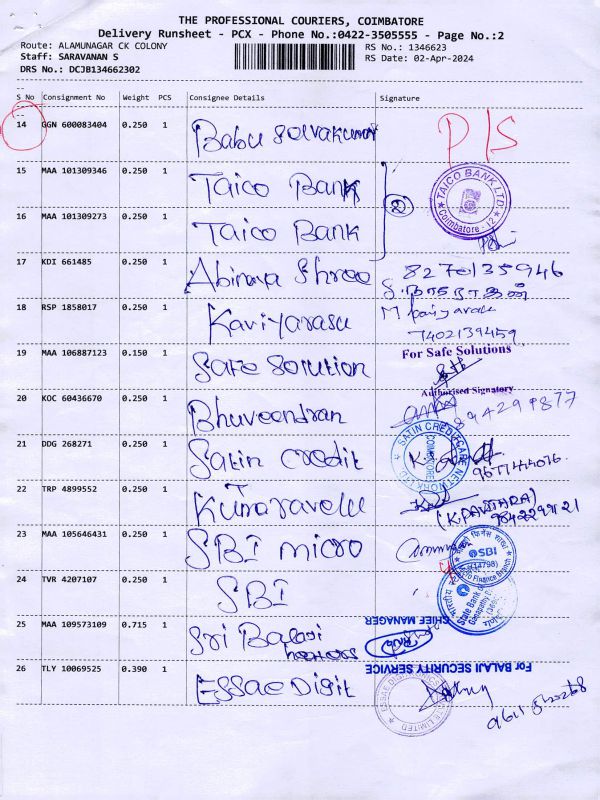 THE PROFESSIONAL COURIERS, COIMBATORE
Delivery Runsheet - PCX - Phone No.:0422-3505555 - Page No.:2
Route: ALAMUNAGAR CK COLONY
RS No.: 1346623
Staff: SARAVANAN S
RS Date: 02-Apr-2024
DRS No.: DCJB134662302
S No Consignment No Weight PCS Consignee Details Signature
14 GGN 600083404 0.250 1 Babu Selvakumar P/S
15 MAA 101309346 0.250 1 Taico Bank
TAICO BANK LTD. Coimbatore - 12
16 MAA 101309273 0.250 1 Taico Bank
2
17 KDI 661485 0.250 1 Abinaya Shree 8270135946
18 RSP 1858017 0.250 1 Kaviyarasu
7402139459
19 MAA 106887123 0.150 1 Safe Solution For Safe Solutions
Authorised Signatory
20 KOC 60436670 0.250 1 Bhuveendran
21 DDG 268271 0.250 1 Satin Credit
SATIN CREDITCARE NETWORK LTD COIMBATORE
22 TRP 4899552 0.250 1 Kumaravelu
23 MAA 105646431 0.250 1 SBI micro
SBI
24 TVR 4207107 0.250 1 SBI
State Bank of
CHIEF MANAGER
25 MAA 109573109 0.715 1 Sri Balaji
For BALAJI SECURITY SERVICE
26 TLY 10069525 0.390 1 Essae Digit